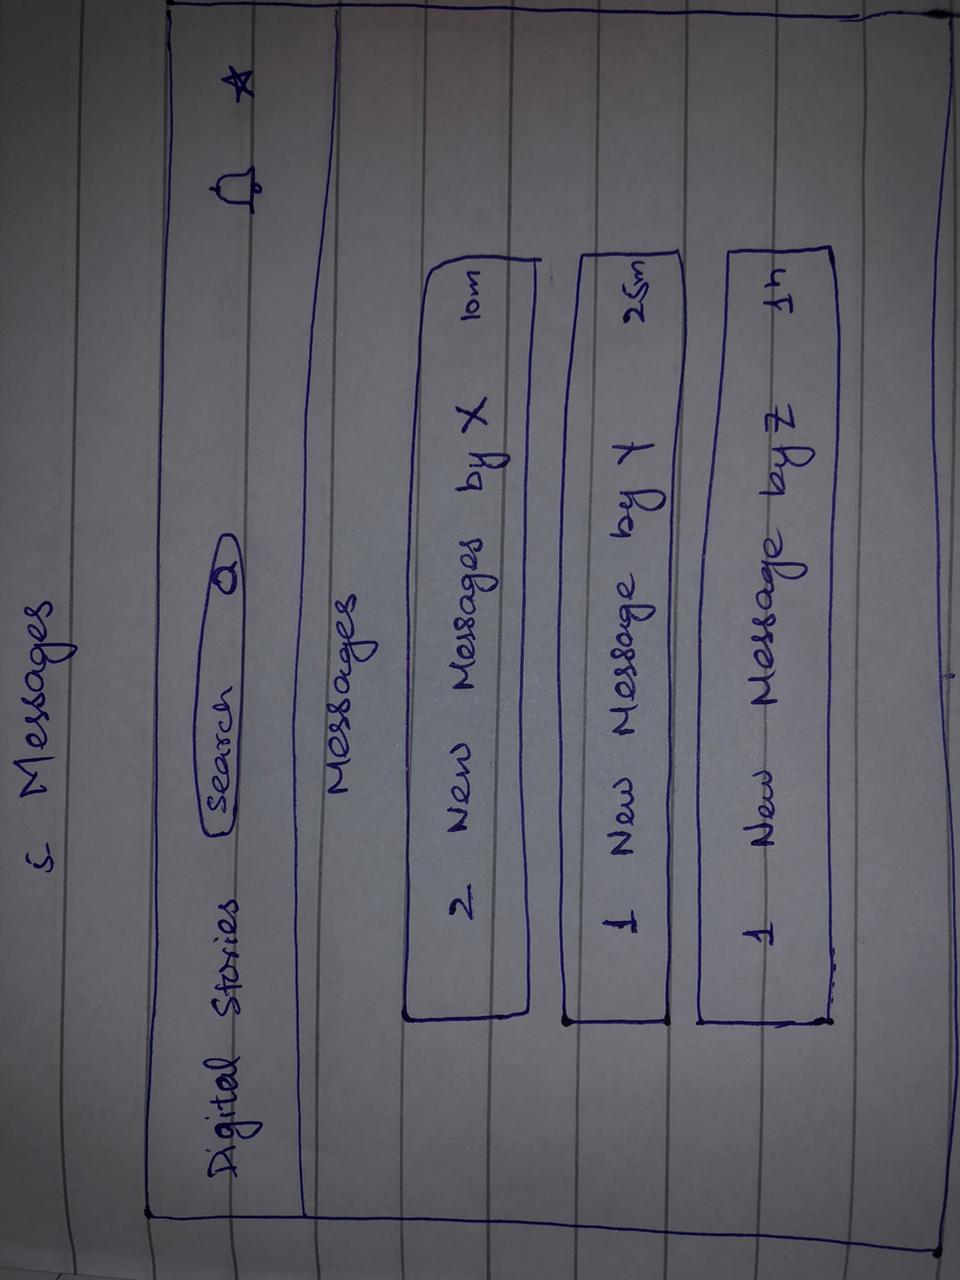 Messages
Digital Stories Search
Messages
2 New Messages by X 10m
1 New Message by Y 25m
1 New Message by Z 1h